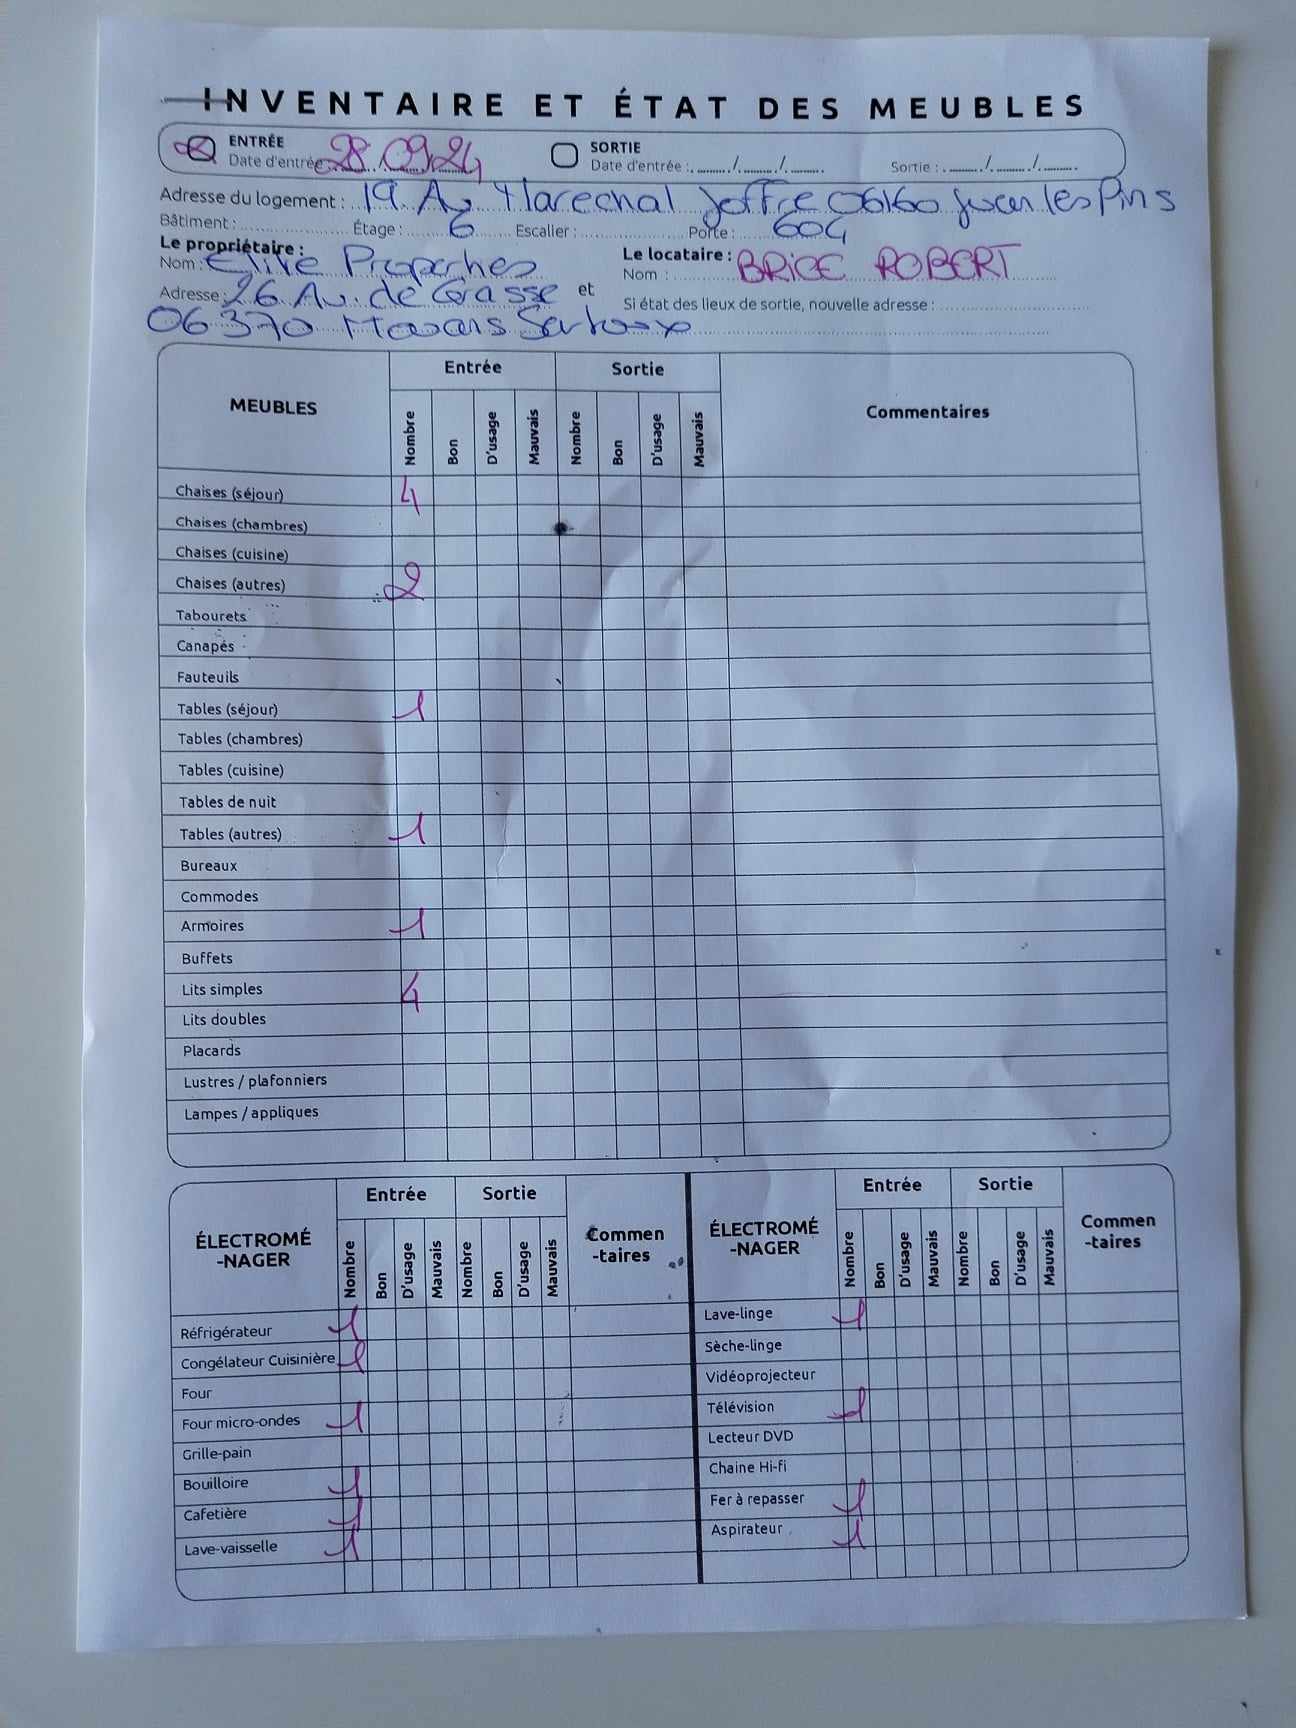 INVENTAIRE ET ÉTAT DES MEUBLES
ENTRÉE
Date d'entrée : 28/09/24
SORTIE
Date d'entrée : ........./........./.........
Sortie : ........./........./.........
Adresse du logement : 19 Av Marechal Joffre 06160 Juan les Pins
Bâtiment : Étage : 6 Escalier : Porte : 604
Le propriétaire :
Nom : Elite Properties
Adresse : 26 Av. de Grasse et
06370 Mouans Sartoux
Le locataire :
Nom : BRICE ROBERT
Si état des lieux de sortie, nouvelle adresse :
MEUBLES Entrée Sortie Commentaires
Nombre Bon D'usage Mauvais Nombre Bon D'usage Mauvais
Chaises (séjour) 4
Chaises (chambres)
Chaises (cuisine)
Chaises (autres) 2
Tabourets
Canapés
Fauteuils
Tables (séjour) 1
Tables (chambres)
Tables (cuisine)
Tables de nuit
Tables (autres) 1
Bureaux
Commodes
Armoires 1
Buffets
Lits simples 4
Lits doubles
Placards
Lustres / plafonniers
Lampes / appliques
ÉLECTROMÉ
-NAGER
Entrée Sortie
Commen
-taires
Nombre Bon D'usage Mauvais Nombre Bon D'usage Mauvais
Réfrigérateur 1
Congélateur Cuisinière 1
Four
Four micro-ondes 1
Grille-pain
Bouilloire 1
Cafetière 1
Lave-vaisselle 1
ÉLECTROMÉ
-NAGER
Entrée Sortie
Commen
-taires
Nombre Bon D'usage Mauvais Nombre Bon D'usage Mauvais
Lave-linge 1
Sèche-linge
Vidéoprojecteur
Télévision 1
Lecteur DVD
Chaine Hi-fi
Fer à repasser 1
Aspirateur 1